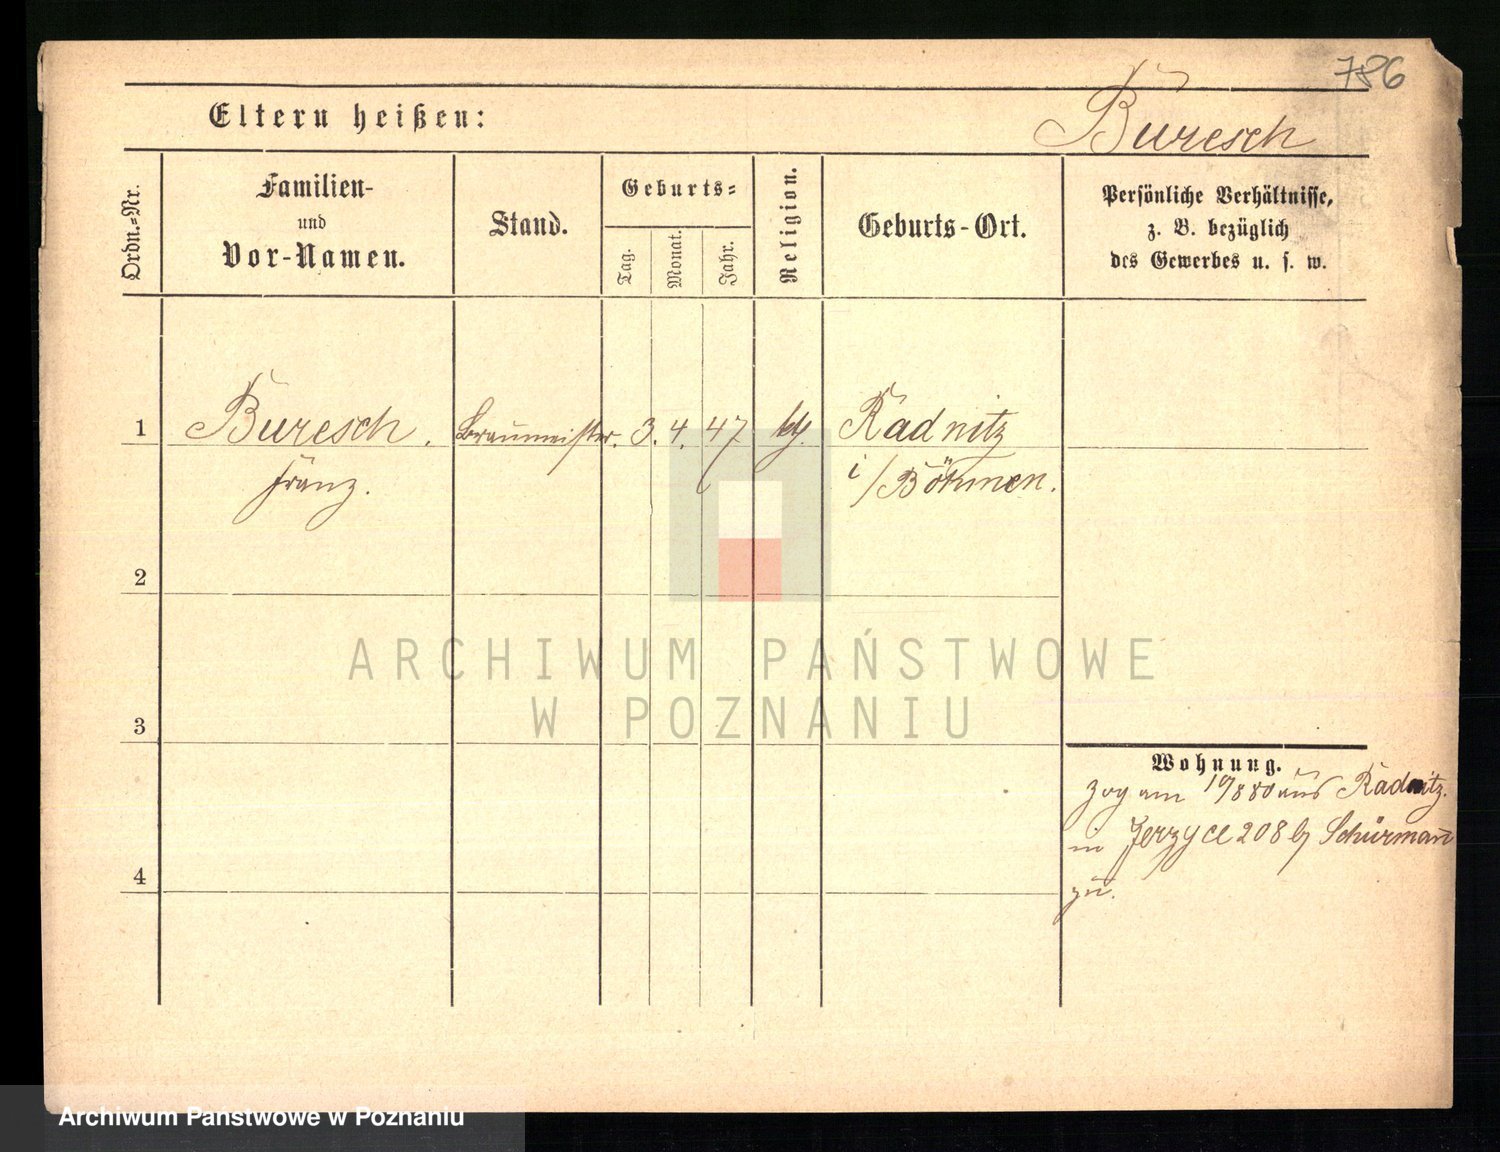 786
Eltern heißen:
Buresch
Ordn.=Nr.
Familien-
und
Vor-Namen.
Stand.
Geburts=
Tag.
Monat.
Jahr.
Religion.
Geburts-Ort.
Persönliche Verhältnisse,
z. B. bezüglich
des Gewerbes u. s. w.
1
Buresch.
Braumeister.
3. 4. 47
kth.
Radnitz
Franz.
i/Böhmen.
2
ARCHIWUM PAŃSTWOWE
W POZNANIU
3
Wohnung.
zog am 880 aus Radnitz.
in Jerzyce 208 b/ Schürmann
zu.
4
Archiwum Państwowe w Poznaniu